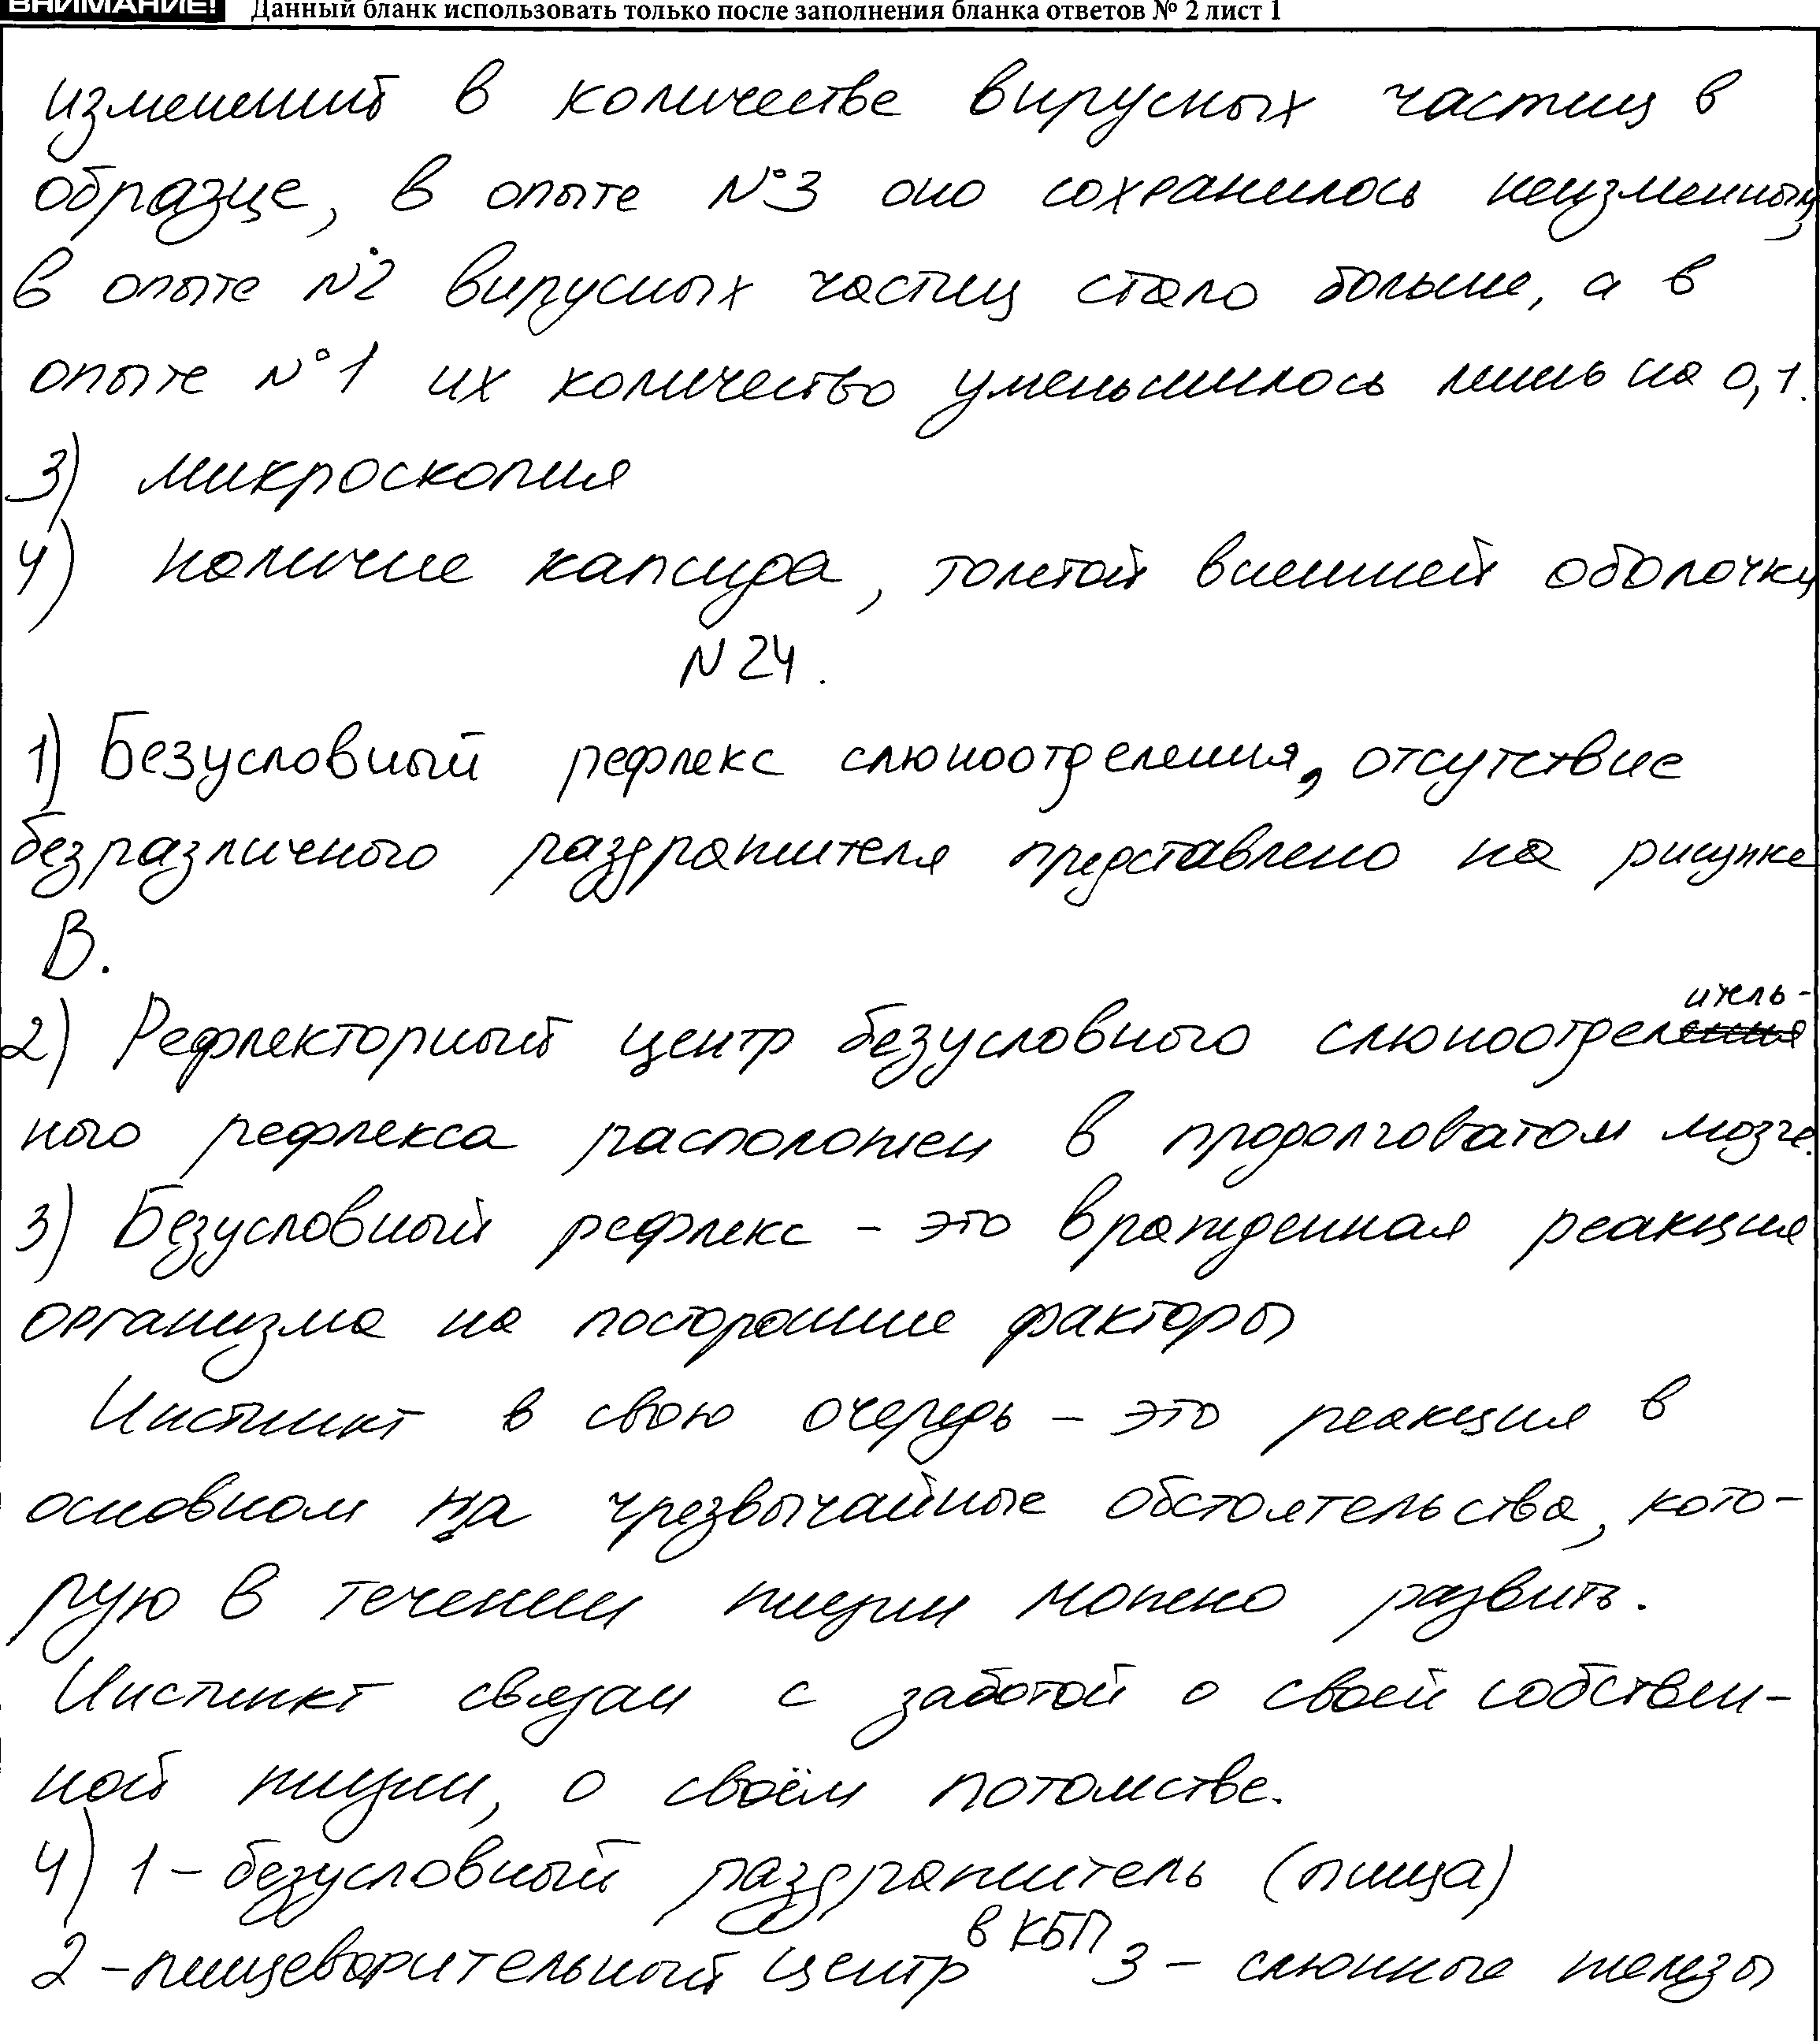 ВНИМАНИЕ! Данный бланк использовать только после заполнения бланка ответов № 2 лист 1
изменений в количестве вирусных частиц в
образце, в опыте №3 оно сохранилось неизменным,
в опыте №2 вирусных частиц стало больше, а в
опыте №1 их количество уменьшилось лишь на 0,1.
3) микроскопия
4) наличие капсида, толстой внешней оболочки
N 24.
1) Безусловный рефлекс слюноотделения, отсутствие
безразличного раздражителя представлено на рисунке
В.
2) Рефлекторный центр безусловного слюноотделитель-
ного рефлекса расположен в продолговатом мозге.
3) Безусловный рефлекс - это врожденная реакция
организма на посторонние факторы
Инстинкт в свою очередь - это реакция в
основном на чрезвычайные обстоятельства, кото-
рую в течении жизни можно развить.
Инстинкт связан с заботой о своей собствен-
ной жизни, о своём потомстве.
4) 1 - безусловный раздражитель (пища)
2 - пищеварительный центр в КБП 3 - слюнные железы